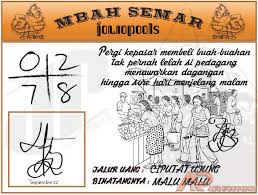 MBAH SEMAR
jonopools
Pergi kepasar membeli buah-buahan
Tak pernah lelah si pedagang
menawarkan dagangan
hingga sore hari menjelang malam
0 2
7 8
September 22
JALUR UANG : CIPUTAT UJUNG
BINATANGNYA : MALU MALU